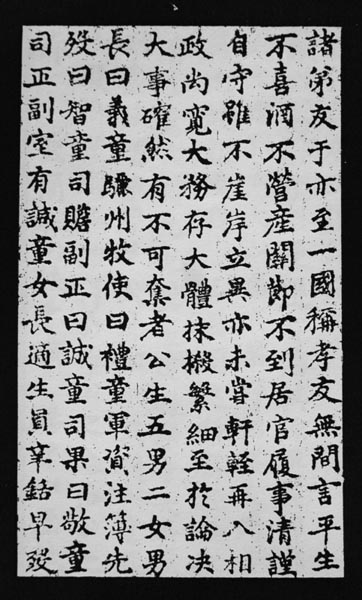 諸弟友于亦至一國稱孝友無間言平生
不喜酒不營産關節不到居官履事清謹
自守雖不崖岸立異亦未嘗軒輊再入相
政尚寬大務存大體抹摋繁細至於論决
大事確然有不可奪者公生五男二女男
長曰義童驪州牧使曰禮童軍資注簿先
歿曰智童司贍副正曰誠童司果曰敬童
司正副室有誠童女長適生員辛早歿